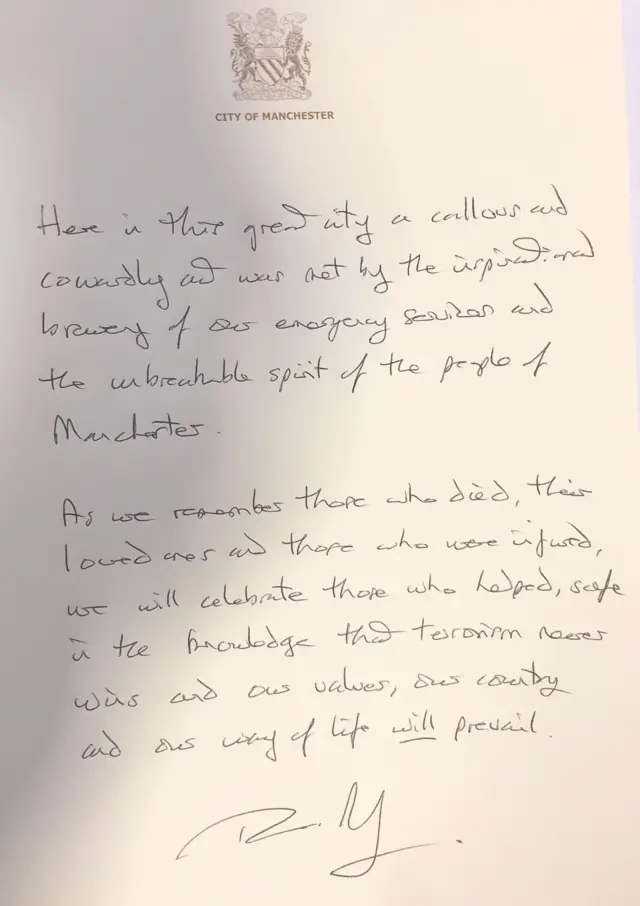 CITY OF MANCHESTER
Here in this great city a callous and
cowardly act was met by the inspirational
bravery of our emergency services and
the unbreakable spirit of the people of
Manchester.
As we remember those who died, their
loved ones and those who were injured,
we will celebrate those who helped, safe
in the knowledge that terrorism never
wins and our values, our country
and our way of life will prevail.